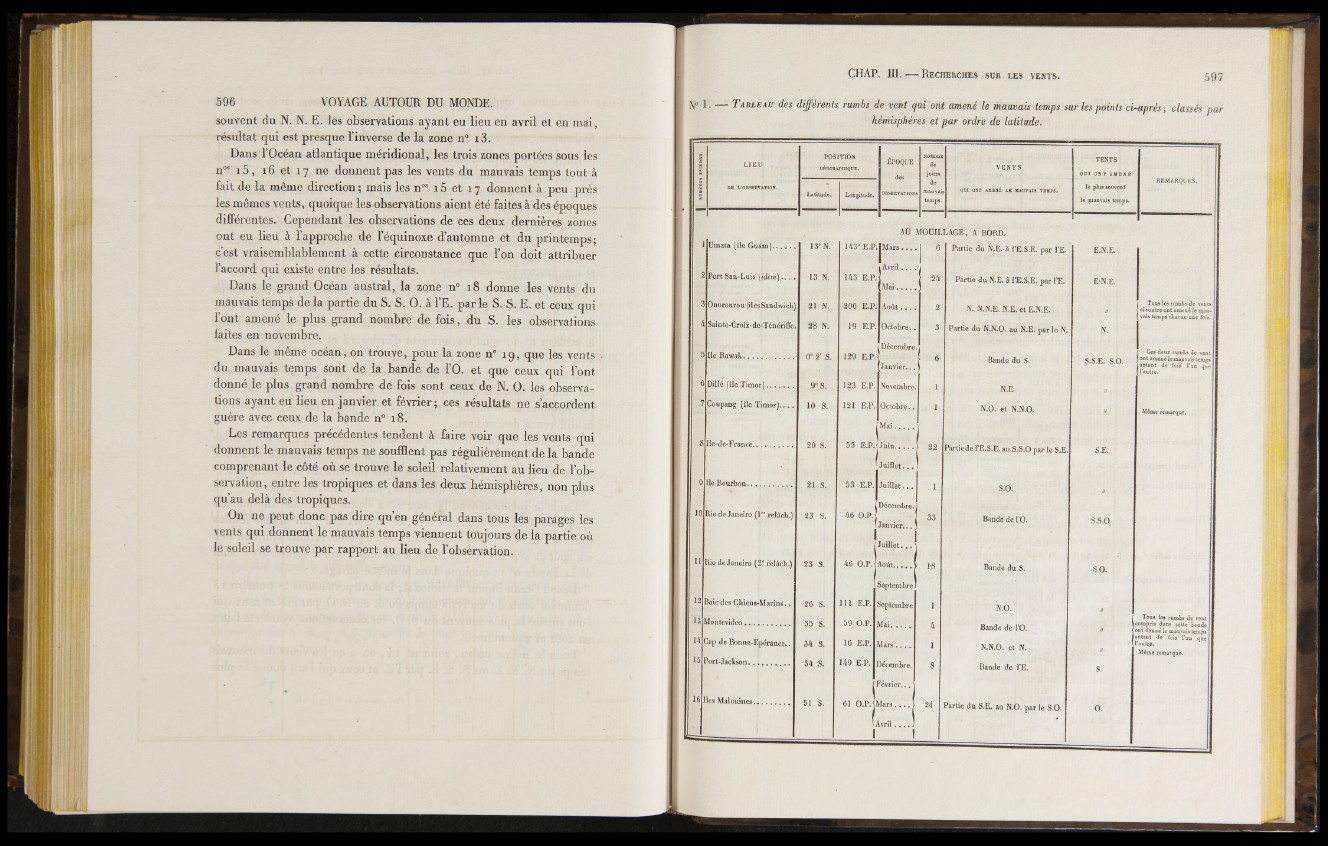 596 VOYAGE AUTOUR DU MONDE.
souvent du N. N. E. les observations ayant eu lieu en avril et en mai,
résultat qui est presque l'inverse de la zone n° 13.
Dans l'Océan atlantique méridional, les trois zones portées sous les
nos 15, 16 et 17 ne donnent pas les vents du mauvais temps tout à
fait de la même direction; mais les nos 15 et 17 donnent à peu près
les mêmes vents, quoique les observations aient été faites à des époques
différentes. Cependant les observations de ces deux dernières zones
ont eu lieu à l'approche de l'équinoxe d'automne et du printemps;
c'est vraisemblablement à cette circonstance que l'on doit attribuer
l'accord qui existe entre les résultats.
Dans le grand Océan austral, la zone n° 18 donne les vents du
mauvais temps de la partie du S. S. O. à l'E. par le S. S. E. et ceux qui
l'ont amené le plus grand nombre de fois, du S. les observations
faites en novembre.
Dans le même océan, on trouve, pour la zone n° 19, que les vents
du mauvais temps sont de la bande de l'O. et que ceux qui l'ont
donné le plus grand nombre de fois sont ceux de N. O. les observa-
tions ayant eu lieu en janvier et février; ces résultats ne s'accordent
guère avec ceux de la bande n° 18.
Les remarques précédentes tendent à faire voir que les vents qui
donnent le mauvais temps ne soufflent pas régulièrement de la bande
comprenant le côté où se trouve le soleil relativement au lieu de l'ob-
servation, entre les tropiques et dans les deux hémisphères, non plus
qu'au delà des tropiques.
On ne peut donc pas dire qu'en général dans tous les parages les
vents qui donnent le mauvais temps viennent toujours de la partie où
le soleil se trouve par rapport au lieu de l'observation.
CHAP. III. — RECHERCHES SUR LES VENTS. 597
N° 1. — TABLEAU des différents rumbs de vent qui ont amené le mauvais temps sur les points ci-après; classés par
hémisphères et par ordre de latitude.
LIEU DE L'OBSERVATION.
POSITION GÉOGRAPHIQUE.
Latitude. Longitude.
ÉPOQUE des OBSERVATIONS
NOMBRE de jours de mauvais temps.
VENTS QUI ONT AMENÉ LE MAUVAIS TEMPS.
VENTS QUI ONT AMENÉ le plus souvent le mauvais temps.
REMARQUES.
AU MOUILLAGE, A BORD.
1 Umata (île Guam)...... 13° N. 143° E.P. Mars.... 6 Partie du N.E. à l'E.S.E. par l'E. E.N.E.
2 Port San-Luis (idem).... 13 N. 143 E.P. Avril.... Mai..... 24 Partie du N.E. à l'E.S.E. par l'E. E.N.E.
3 Onorourou (îles Sandwich) 21 N. 200 E.P. Août.... 2 N. N.N.E. N.E. et E.N.E. " Tous les rumbs de vents ci-contre ont amené le mauvais temps chacun une fois.
4 Sainte-Croix-de-Ténériffe. 28 N. 19 E.P. Octobre.. 3 Partie du N.N.O. au N.E. par le N. N.
5 Ile Rawak............ 0° 2' S. 129 E.P. Décembre. Janvier... 6 Bande du S. S.S.E. S.O. Ces deux rumbs de vent ont amené le mauvais temps autant de fois l'un que l'autre.
6 Dillé (île Timor)....... 9° S. 123 E.P. Novembre. 1 N.E. "
7 Coupang (île Timor).... 10 S. 121 E.P. Octobre.. 1 N.O. et N.N.O. " Même remarque.
8 Ile-de-France.......... 20 S. 55 E.P. Mai..... Juin..... Juillet... 22 Partie de l'E.S.E. au S.S.O par le S.E. S.E.
9 Ile Bourbon........... 21 S. 53 E.P. Juillet... 1 S.O. "
10 Rio de Janeiro (1re relâch.) 23 S. 46 O.P. Décembre. Janvier... 33 Bande de l'O. S.S.O.
11 Rio de Janeiro (2e relâch.) 23 S. 46 O.P. Juillet... Août..... Septembre 18 Bande du S. S.O.
12 Baie des Chiens-Marins.. 20 S. 111 E.P. Septembre 1 N.O. "
13 Montevideo........... 35 S. 59 O.P. Mai..... 4 Bande de l'O. " Tous les rumbs de vent compris dans cette bande ont donné le mauvais temps autant de fois l'un que l'autre.
14 Cap de Bonne-Espérance.. 34 S. 16 E.P. Mars.... 1 N.N.O. et N. " Même remarque.
15 Port-Jackson.......... 34 S. 149 E.P. Décembre. 8 Bande de l'E. S.
16 Iles Malouines......... 51 S. 61 O.P. Février... Mars.... Avril..... 24 Partie du S.E. au N.O. par le S.O. O.